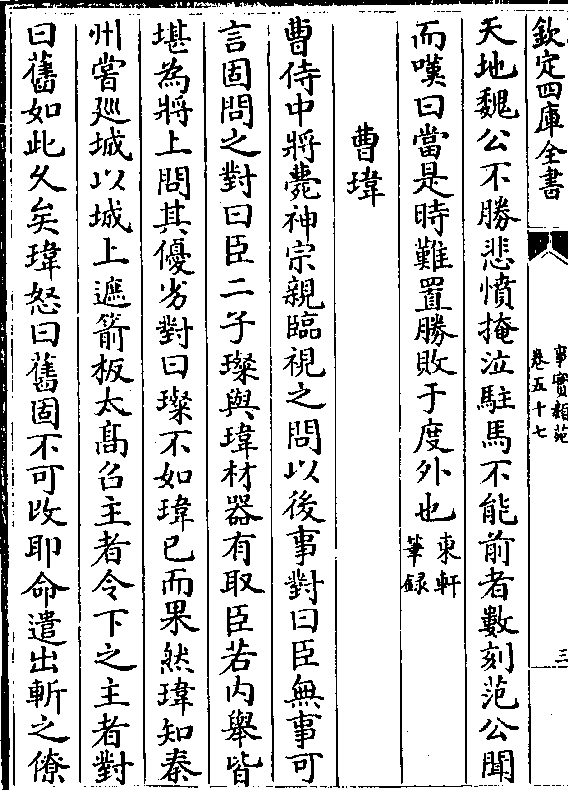 欽定四庫全書
事實類苑
卷五十七
三
天地魏公不勝悲憤掩泣駐馬不能前者數刻范公聞
而嘆曰當是時難置勝敗于度外也東軒筆録
曹瑋
曹侍中將薨神宗親臨視之問以後事對曰臣無事可
言固問之對曰臣二子璨與瑋材器有取臣若内舉皆
堪為將上問其優劣對曰璨不如瑋已而果然瑋知秦
州嘗廵城以城上遮箭板太髙召主者令下之主者對
曰舊如此乆矣瑋怒曰舊固不可改耶命遣出斬之僚